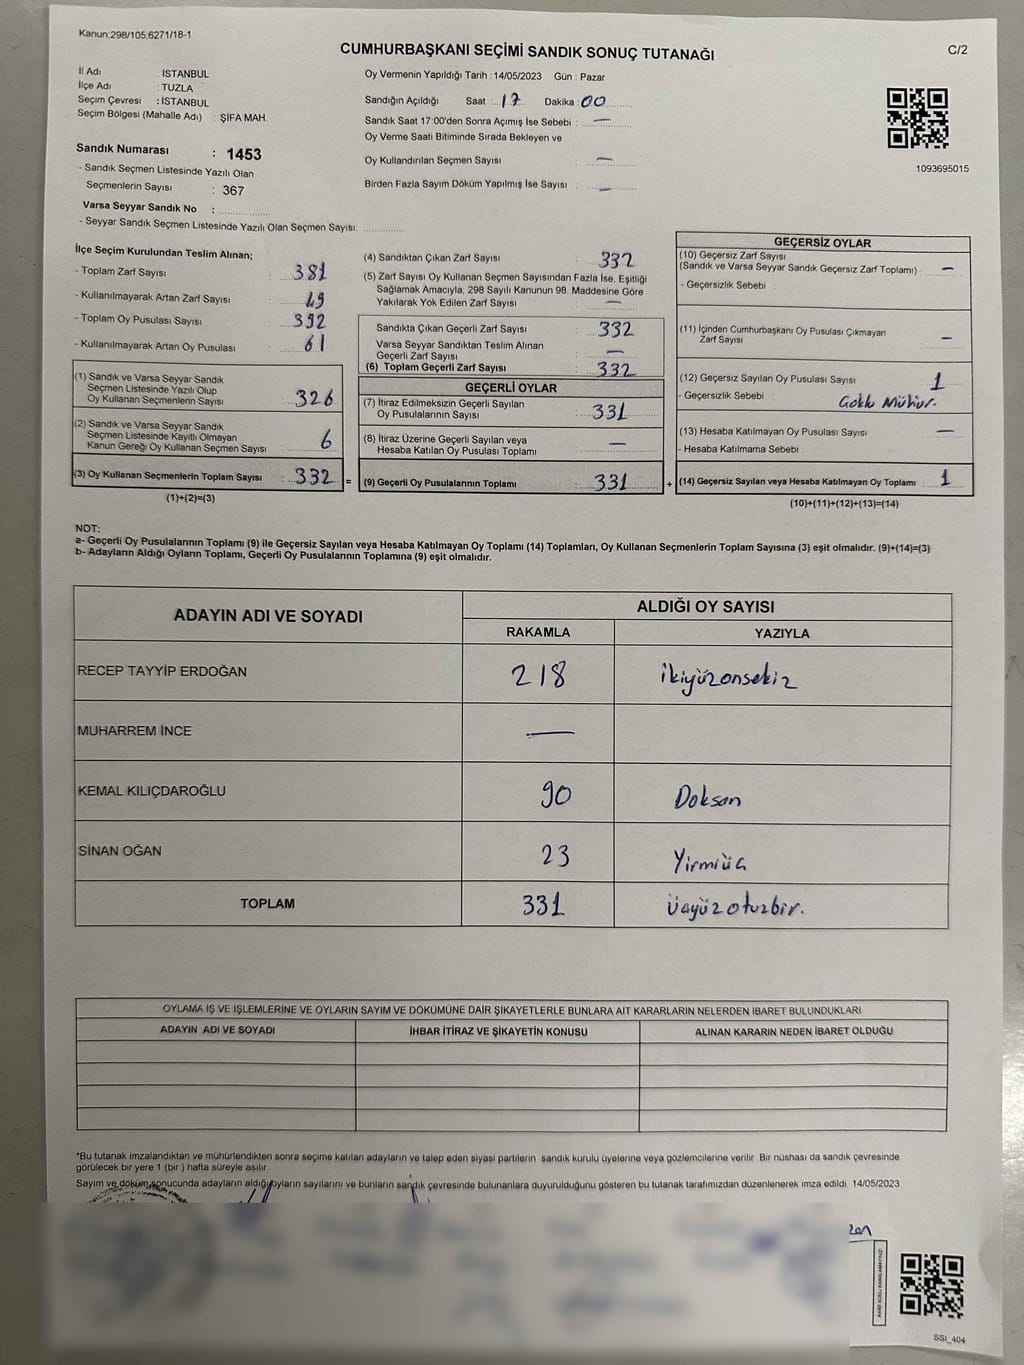 Kanun:298/105;6271/18-1
C/2
CUMHURBAŞKANI SEÇİMİ SANDIK SONUÇ TUTANAĞI
İl Adı : İSTANBUL
İlçe Adı : TUZLA
Seçim Çevresi : İSTANBUL
Seçim Bölgesi (Mahalle Adı) : ŞİFA MAH.
Sandık Numarası : 1453
- Sandık Seçmen Listesinde Yazılı Olan
Seçmenlerin Sayısı : 367
Varsa Seyyar Sandık No :
- Seyyar Sandık Seçmen Listesinde Yazılı Olan Seçmen Sayısı:
Oy Vermenin Yapıldığı Tarih : 14/05/2023 Gün : Pazar
Sandığın Açıldığı Saat : 17 Dakika : 00
Sandık Saat 17:00'den Sonra Açımış İse Sebebi : —
Oy Verme Saati Bitiminde Sırada Bekleyen ve
Oy Kullandırılan Seçmen Sayısı : —
Birden Fazla Sayım Döküm Yapılmış İse Sayısı : —
1093695015
İlçe Seçim Kurulundan Teslim Alınan;
- Toplam Zarf Sayısı : 381
- Kullanılmayarak Artan Zarf Sayısı : 49
- Toplam Oy Pusulası Sayısı : 392
- Kullanılmayarak Artan Oy Pusulası : 61
(1) Sandık ve Varsa Seyyar Sandık
Seçmen Listesinde Yazılı Olup
Oy Kullanan Seçmenlerin Sayısı : 326
(2) Sandık ve Varsa Seyyar Sandık
Seçmen Listesinde Kayıtlı Olmayan
Kanun Gereği Oy Kullanan Seçmen Sayısı : 6
(3) Oy Kullanan Seçmenlerin Toplam Sayısı : 332 =
(1)+(2)=(3)
(4) Sandıktan Çıkan Zarf Sayısı : 332
(5) Zarf Sayısı Oy Kullanan Seçmen Sayısından Fazla İse, Eşitliği
Sağlamak Amacıyla, 298 Sayılı Kanunun 98. Maddesine Göre
Yakılarak Yok Edilen Zarf Sayısı : —
Sandıkta Çıkan Geçerli Zarf Sayısı : 332
Varsa Seyyar Sandıktan Teslim Alınan
Geçerli Zarf Sayısı : —
(6) Toplam Geçerli Zarf Sayısı : 332
GEÇERLİ OYLAR
(7) İtiraz Edilmeksizin Geçerli Sayılan
Oy Pusulalarının Sayısı : 331
(8) İtiraz Üzerine Geçerli Sayılan veya
Hesaba Katılan Oy Pusulası Toplamı : —
(9) Geçerli Oy Pusulalarının Toplamı : 331 +
GEÇERSİZ OYLAR
(10) Geçersiz Zarf Sayısı
(Sandık ve Varsa Seyyar Sandık Geçersiz Zarf Toplamı) : —
- Geçersizlik Sebebi :
(11) İçinden Cumhurbaşkanı Oy Pusulası Çıkmayan
Zarf Sayısı : —
(12) Geçersiz Sayılan Oy Pusulası Sayısı : 1
- Geçersizlik Sebebi : Çoklu Mühür.
(13) Hesaba Katılmayan Oy Pusulası Sayısı : —
- Hesaba Katılmama Sebebi :
(14) Geçersiz Sayılan veya Hesaba Katılmayan Oy Toplamı : 1
(10)+(11)+(12)+(13)=(14)
NOT:
a- Geçerli Oy Pusulalarının Toplamı (9) ile Geçersiz Sayılan veya Hesaba Katılmayan Oy Toplamı (14) Toplamları, Oy Kullanan Seçmenlerin Toplam Sayısına (3) eşit olmalıdır. (9)+(14)=(3)
b- Adayların Aldığı Oyların Toplamı, Geçerli Oy Pusulalarının Toplamına (9) eşit olmalıdır.
ADAYIN ADI VE SOYADI ALDIĞI OY SAYISI
RAKAMLA YAZIYLA
RECEP TAYYİP ERDOĞAN 218 ikiyüzonsekiz
MUHARREM İNCE —
KEMAL KILIÇDAROĞLU 90 Doksan
SİNAN OĞAN 23 Yirmiüç
TOPLAM 331 üçyüzotuzbir.
OYLAMA İŞ VE İŞLEMLERİNE VE OYLARIN SAYIM VE DÖKÜMÜNE DAİR ŞİKAYETLERLE BUNLARA AİT KARARLARIN NELERDEN İBARET BULUNDUKLARI
ADAYIN ADI VE SOYADI İHBAR İTİRAZ VE ŞİKAYETİN KONUSU ALINAN KARARIN NEDEN İBARET OLDUĞU
*Bu tutanak imzalandıktan ve mühürlendikten sonra seçime katılan adayların ve talep eden siyasi partilerin sandık kurulu üyelerine veya gözlemcilerine verilir. Bir nüshası da sandık çevresinde
görülecek bir yere 1 (bir ) hafta süreyle asılır.
Sayım ve döküm sonucunda adayların aldığı oyların sayılarını ve bunların sandık çevresinde bulunanlara duyurulduğunu gösteren bu tutanak tarafımızdan düzenlenerek imza edildi. 14/05/2023
SSI_404